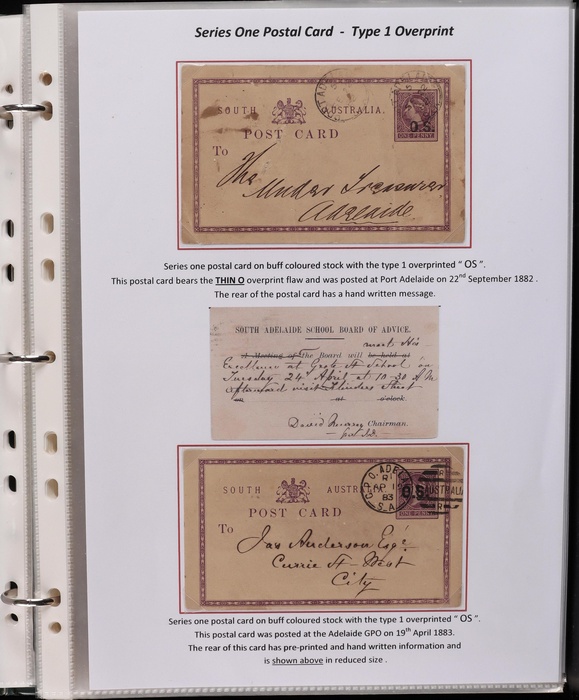 Series One Postal Card - Type 1 Overprint
SOUTH AUSTRALIA.
POST CARD
O.S.
ONE PENNY
To
The
Under Treasurer
Adelaide
Series one postal card on buff coloured stock with the type 1 overprinted “ OS ”.
This postal card bears the THIN O overprint flaw and was posted at Port Adelaide on 22nd September 1882 .
The rear of the postal card has a hand written message.
SOUTH ADELAIDE SCHOOL BOARD OF ADVICE.
A Meeting of the Board will be held at meet His
Excellence at Grote St School on
Tuesday 24 April at 10-30 A.M
afterward visit Flinders Street
at o'clock.
David Murray Chairman.
G.P.O. ADELAIDE
R
AP 1
83
S.A.
SOUTH AUSTRALIA
O.S.
AUSTRALIA
ONE PENNY
POST CARD
To
Jas Anderson Esqr
Currie St West
City
Series one postal card on buff coloured stock with the type 1 overprinted “ OS ”.
This postal card was posted at the Adelaide GPO on 19th April 1883.
The rear of this card has pre-printed and hand written information and
is shown above in reduced size .